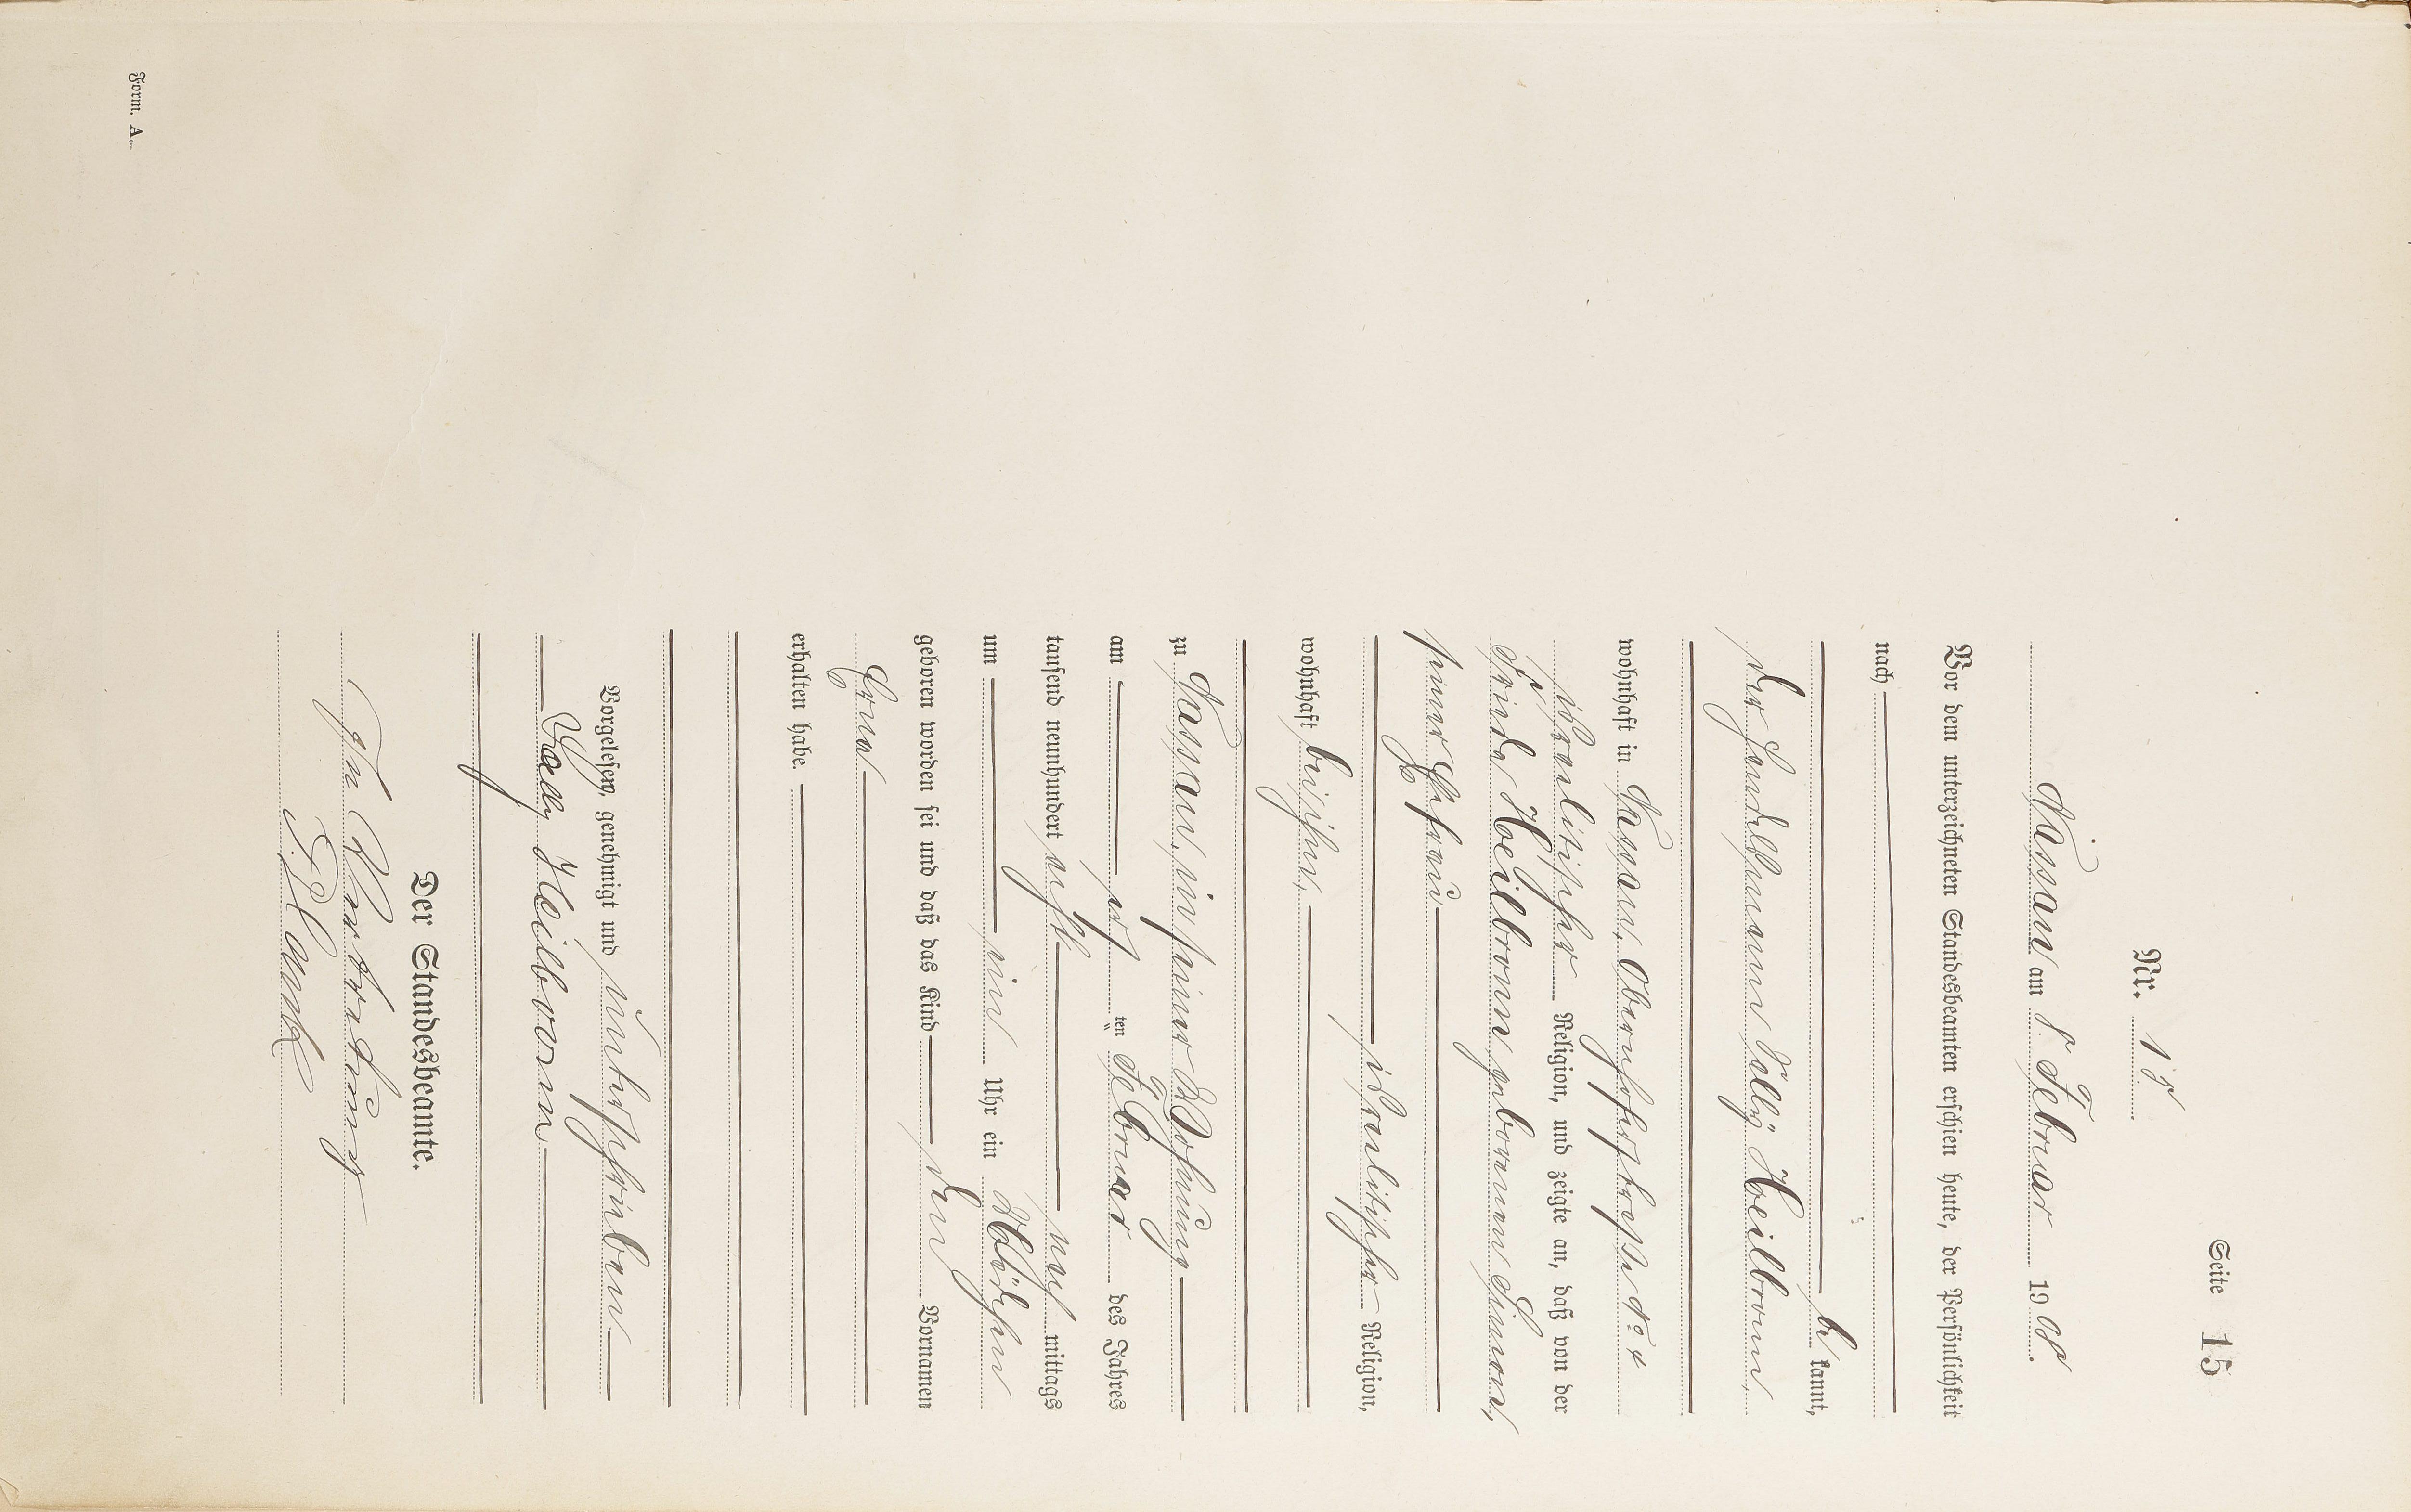 Seite 15
Nr. 15.
Nassau am 8. Februar 1908.
Vor dem unterzeichneten Standesbeamten erschien heute, der Persönlichkeit
nach
be kannt,
der Handelsmann Sally Heilbronn,
wohnhaft in Nassau, Obernhoferstraße No 4
israelitischer Religion, und zeigte an, daß von der
Frieda Heilbronn geborenen Simon,
seiner Ehefrau
israelitischer Religion,
wohnhaft bei ihm,
zu Nassau, in seiner Wohnung
am ten Februar des Jahres
tausend neunhundert acht nach mittags
um ein Uhr ein Mädchen
geboren worden sei und daß das Kind den Vornamen
Erna
erhalten habe.
Vorgelesen, genehmigt und unterschrieben
Sally Heilbronn
Der Standesbeamte.
In Vertretung
Plank
Form. A.